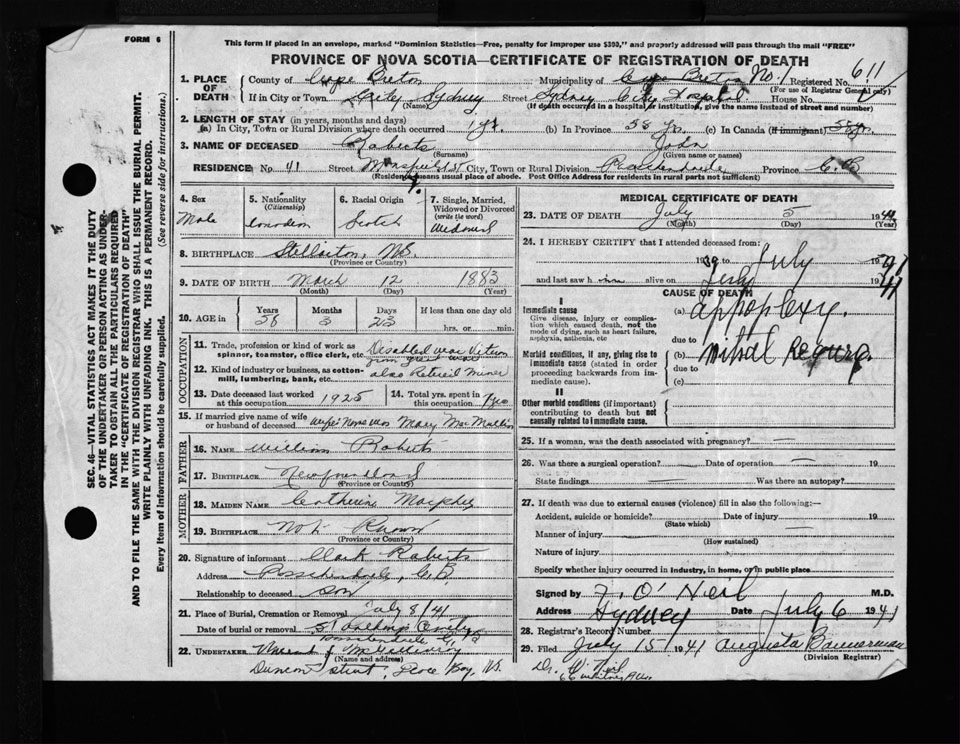 FORM 6
This form if placed in an envelope, marked "Dominion Statistics—Free, penalty for improper use $300," and properly addressed will pass through the mail "FREE"
PROVINCE OF NOVA SCOTIA—CERTIFICATE OF REGISTRATION OF DEATH
1. PLACE OF DEATH
County of Cape Breton Municipality of Cape Breton No. 1 Registered No. 611
(For use of Registrar General only)
If in City or Town City Sydney Street Sydney City Hospital House No.
(Name) (If death occurred in a hospital or institution, give the name instead of street and number)
2. LENGTH OF STAY (in years, months and days)
(a) In City, Town or Rural Division where death occurred 1 yr. (b) In Province 58 yrs. (c) In Canada (if immigrant) 58 yrs.
3. NAME OF DECEASED Roberts John
(Surname) (Given name or names)
RESIDENCE No 41 Street Mansfield St City, Town or Rural Division Province C.B.
(Residence means usual place of abode. Post Office Address for residents in rural parts not sufficient)
4. Sex
Male
5. Nationality
(Citizenship)
Canadian
6. Racial Origin
Scotch
7. Single, Married, Widowed or Divorced
(write the word)
Widowed
8. BIRTHPLACE Stellarton, N.S.
(Province or Country)
9. DATE OF BIRTH March 12 1883
(Month) (Day) (Year)
10. AGE in
Years Months Days If less than one day old
58 3 23 hrs. or min.
OCCUPATION
11. Trade, profession or kind of work as spinner, teamster, office clerk, etc Disabled war Veteran
12. Kind of industry or business, as cotton-mill, lumbering, bank, etc. also Retired Miner
13. Date deceased last worked at this occupation 1925
14. Total yrs. spent in this occupation
15. If married give name of wife or husband of deceased wife's name was Mary MacMullin
FATHER
16. NAME William Roberts
17. BIRTHPLACE Newfoundland
(Province or Country)
MOTHER
18. MAIDEN NAME Catherine
19. BIRTHPLACE Not Known
(Province or Country)
20. Signature of informant Clark Roberts
Address C.B.
Relationship to deceased son
21. Place of Burial, Cremation or Removal July 8/41
Date of burial or removal St
22. UNDERTAKER
(Name and address)
Glace Bay, N.S.
MEDICAL CERTIFICATE OF DEATH
23. DATE OF DEATH July 5 1941
(Month) (Day) (Year)
24. I HEREBY CERTIFY that I attended deceased from:
1939 to July 1941
and last saw him alive on July 1941
CAUSE OF DEATH
I
Immediate cause
Give disease, injury or complication which caused death, not the mode of dying, such as heart failure, asphyxia, asthenia, etc
(a) apoplexy.
due to
Morbid conditions, if any, giving rise to immediate cause (stated in order proceeding backwards from immediate cause).
(b) mitral Regurg.
due to
(c)
II
Other morbid conditions (if important) contributing to death but not causally related to immediate cause.
25. If a woman, was the death associated with pregnancy? —
26. Was there a surgical operation? — Date of operation — 19
State findings Was there an autopsy?
27. If death was due to external causes (violence) fill in also the following:—
Accident, suicide or homicide? Date of injury 19
(State which)
Manner of injury
(How sustained)
Nature of injury
Specify whether injury occurred in industry, in home, or in public place
Signed by F. O'Neil M.D.
Address Sydney Date July 6 1941
28. Registrar's Record Number
29. Filed July 15 1941 Augusta Bannerman
(Division Registrar)
Dr.
SEC. 46—VITAL STATISTICS ACT MAKES IT THE DUTY
OF THE UNDERTAKER OR PERSON ACTING AS UNDER-
TAKER TO OBTAIN ALL THE PARTICULARS REQUIRED
IN THE "CERTIFICATE OF REGISTRATION OF DEATH"
AND TO FILE THE SAME WITH THE DIVISION REGISTRAR WHO SHALL ISSUE THE BURIAL PERMIT.
WRITE PLAINLY WITH UNFADING INK. THIS IS A PERMANENT RECORD.
Every item of information should be carefully supplied. (See reverse side for instructions.)